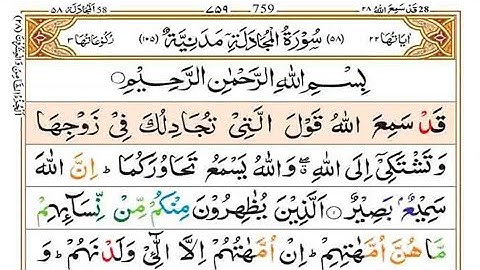 قد سمع الله 28 ٢٨ 759 ٧٥٩ المجادلة 58 ٥٨
اٰيَاتُهَا ٢٢ (٥٨) سُوْرَةُ الْمُجَادَلَةِ مَدَنِيَّةٌ (١٠٥) رُكُوْعَاتُهَا ٣
بِسْمِ اللهِ الرَّحْمٰنِ الرَّحِيْمِ
قَدْ سَمِعَ اللهُ قَوْلَ الَّتِيْ تُجَادِلُكَ فِيْ زَوْجِهَا
وَتَشْتَكِيْٓ اِلَى اللهِ ۖ وَاللهُ يَسْمَعُ تَحَاوُرَكُمَا ؕ اِنَّ اللهَ
سَمِيْعٌۢ بَصِيْرٌ ۝١ اَلَّذِيْنَ يُظٰهِرُوْنَ مِنْكُمْ مِّنْ نِّسَآئِهِمْ
مَّا هُنَّ اُمَّهٰتِهِمْ ؕ اِنْ اُمَّهٰتُهُمْ اِلَّا الّٰٓـِٔيْ وَلَدْنَهُمْ ؕ وَ